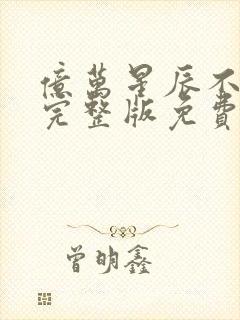 億萬星辰不
完整版免費
曾明鑫